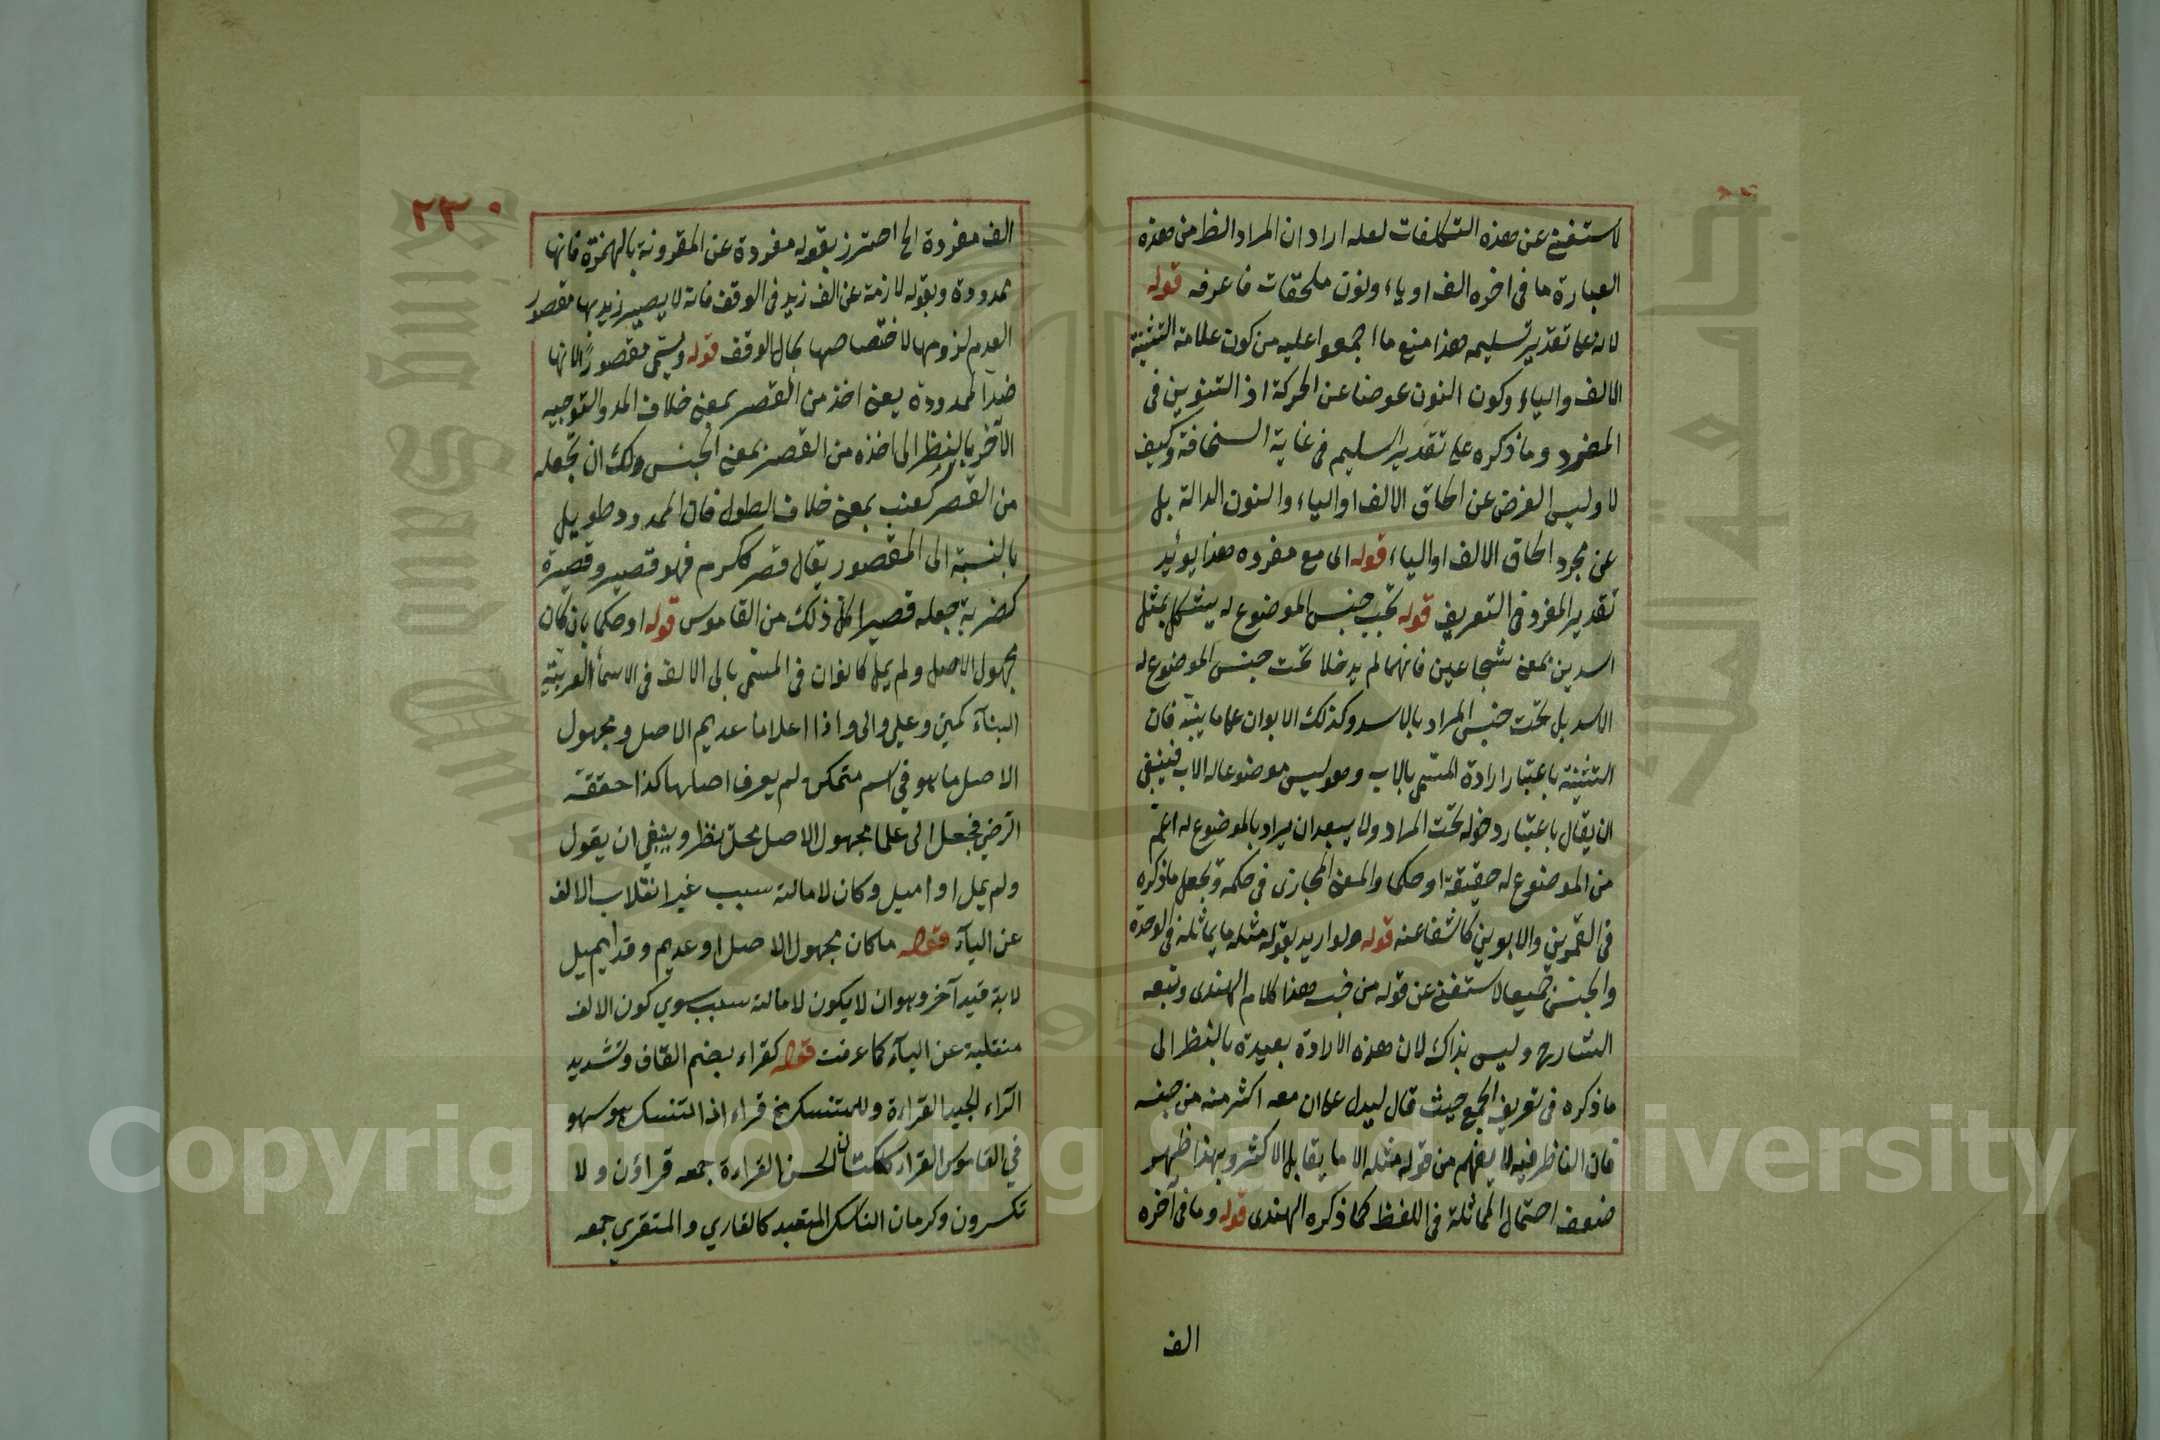 لاستغنى عن هذه التكلفات لعله اراد ان المراد الظ من هذه
العبارة ما فى اخره الف او ياء ونون ملحقات فاعرفه قوله
لانه على تقدير تسليمه هذا منع ما اجمعوا عليه من كون علامة التثنية
الالف والياء وكون النون عوضا عن الحركة اذ التنوين فى
المفرد وما ذكره على تقدير التسليم فى غاية السخافة وكيف
لا وليس الغرض عن الحاق الالف او الياء والنون الدالة بل
عن مجرد الحاق الالف او الياء قوله الى مع مفرده هذا يوئيد
تقدير المفرد فى التعريف قوله تحت جنس الموضوع له يشكل بمثل
اسدين بمعنى شجاعين فانهما لم يدخلا تحت جنس الموضوع له
الاسد بل تحت جنس المراد بالاسد وكذلك الابوان على ما ينبه فان
التثنية باعتبار ارادة المسمى بالاب وهو ليس موضوعا له الاب فينبغى
ان يقال باعتبار دخوله تحت المراد ولا يبعد ان يراد بالموضوع له اعم
من الموضوع له حقيقة او حكما والمعنى المجازى فى حكمه ويجعل ما ذكره
فى القمرين والابوين كاشفا عنه قوله ولو اريد بقوله مثله ما يماثله فى الوحدة
والجنس جميعا لاستغنى عن قوله من جنسه هذا كلام الهندى وتبعه
الشارح وليس بذاك لان هذه الارادة بعيدة بالنظر الى
ما ذكره فى تعريف الجمع حيث قال ليدل على ان معه اكثر منه من جنسه
فان الناظر فيه لا يفهم من قوله مثله الا ما يقابل الاكثر وبهذا ظهر
ضعف احتمال المماثلة فى اللفظ كما ذكره الهندى قوله وما فى آخره
الف
٢٣٠
الف مفردة الخ احترز بقوله مفردة عن المقرونة بالهمزة فانها
ممدودة وبقوله لازمة عن الف زيد فى الوقف فانه لا يصير زيد بها مقصور
العدم لزومها لاختصاصها بحال الوقف قوله ويسمى مقصورًا لانها
ضد الممدودة يعنى اخذ من القصر بمعنى خلاف المد والتوجيه
الآخر بالنظر الى اخذه من القصر بمعنى الحبس ولك ان تجعله
من القصر كعنب بمعنى خلاف الطول فان الممدود طويل
بالنسبة الى المقصور يقال قصر ككرم فهو قصير وقصيرة
كضربة جعله قصيرا كل ذلك من القاموس قوله او حكما بان كان
مجهول الاصل ولم يمل كالوان فى المسمى بالى الالف فى الاسماء العربية
البناء كمتى وعلى والى واذا اعلاما عديم الاصل ومجهول
الاصل ما هو فى اسم متمكن لم يعرف اصلها كذا حققه
الرضي فجعل الى علما مجهول الاصل محل نظر وينبغي ان يقول
ولم يمل او اميل وكان لامالته سبب غير انقلاب الالف
عن الياء قوله ما كان مجهول الاصل او عديم وقد اميل
لابد قيد آخر وهو ان لا يكون لامالته سبب سوى كون الالف
منقلبة عن الياء كما عرفت قوله كقراء بضم القاف وتشديد
الراء لجيد القراءة وللمتنسك من قراء اذا تنسك هو سهو
في القاموس القراء ككتان الحسن القراءة جمعه قراؤن ولا
تكسرون وكرمان الناسك المتعبد كالقاري والمتقري جمعه
Copyright © King Saud University